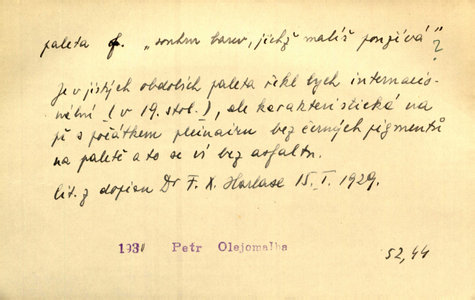 paleta f. „souhrn barev, jichž malíř používá"?
Je v jistých obdobích paleta řekl bych internacio-
nální (v 19. stol.), ale karakteristická na
př s počátkem pleinairu bez černých pigmentů
na paletě a to se ví bez asfaltu.
Cit. z dopisu Dr F. X. Harlase 15. I. 1929.
193 Petr Olejomalba
52,44